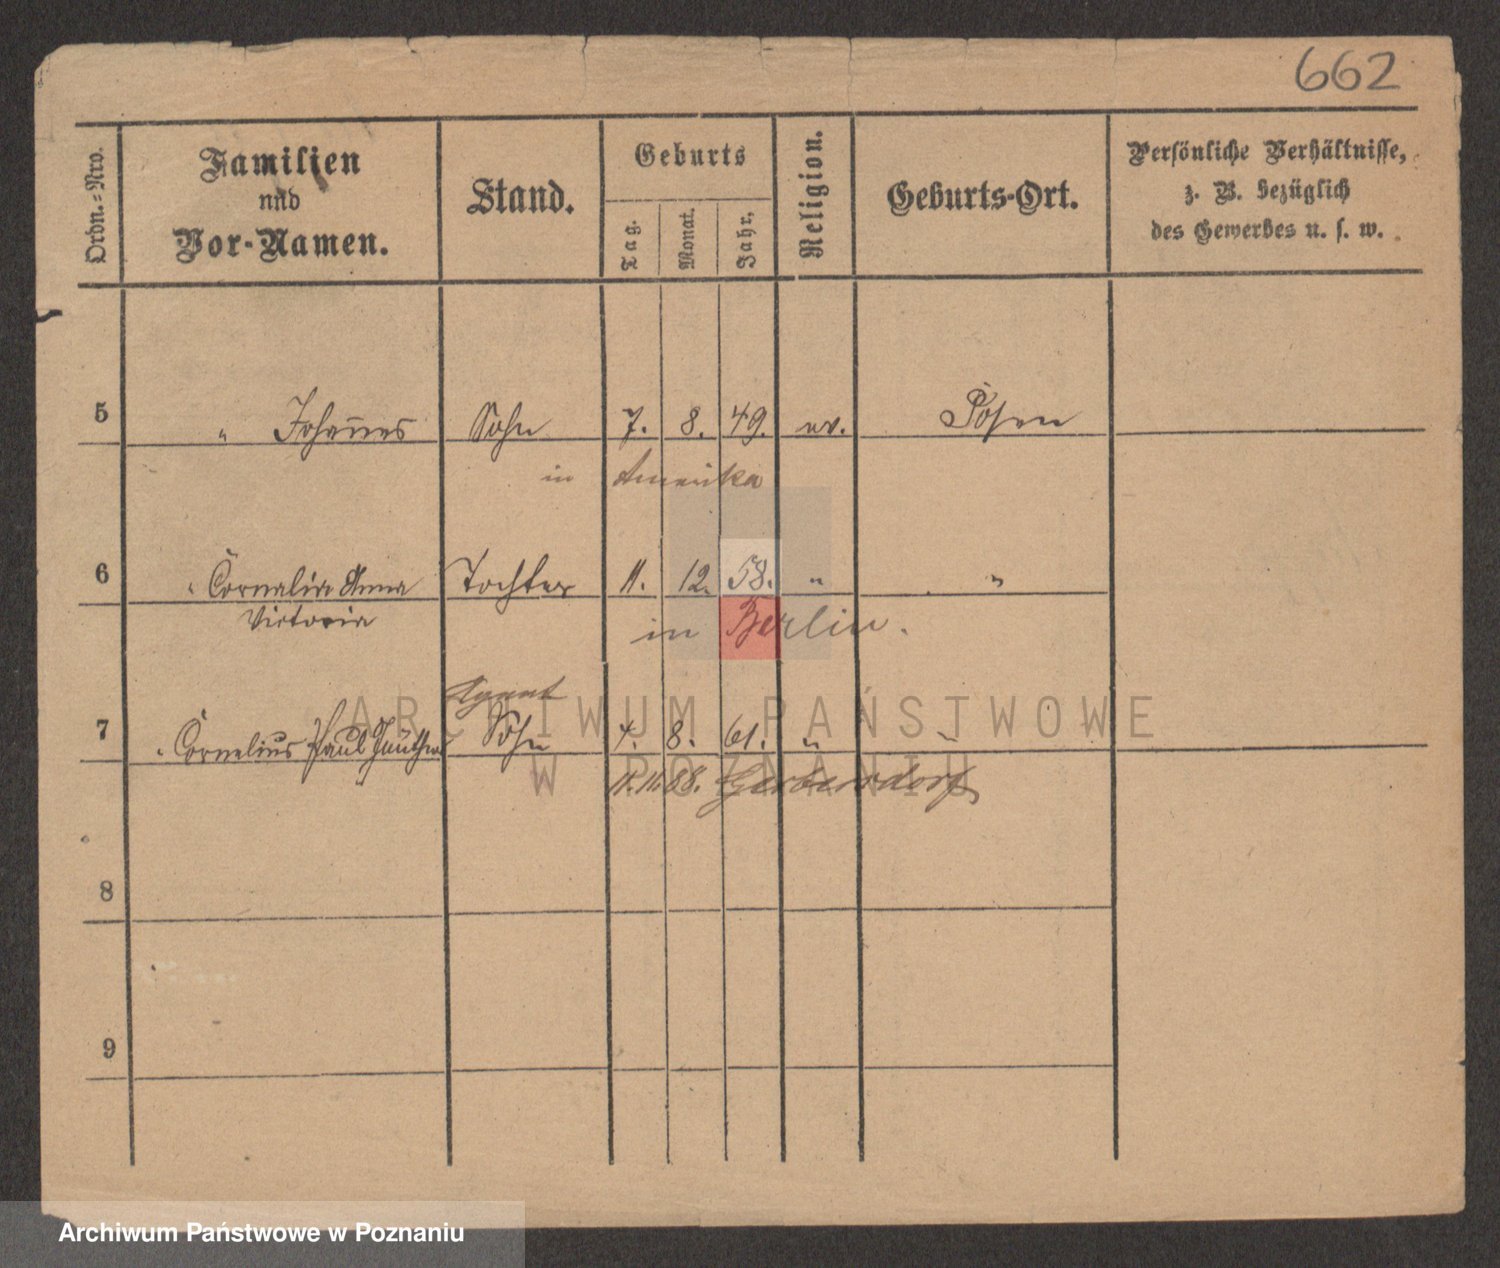 662
Ordn.=Nro.
Familien
und
Vor-Namen.
Stand.
Geburts
Tag.
Monat.
Jahr.
Religion.
Geburts-Ort.
Persönliche Verhältnisse,
z. B. bezüglich
des Gewerbes u. s. w.
5 " Johannes Sohn 7. 8. 49. ev. Posen
in Amerika
6 " Cornelia Anna Tochter 11. 12. 58. " "
Victoria
in Berlin.
Agent
7 " Cornelius Paul Günther Sohn 4. 8. 61. " "
11. 11. 88. Gerbersdorf
8
9
ARCHIWUM PAŃSTWOWE
W POZNANIU
Archiwum Państwowe w Poznaniu